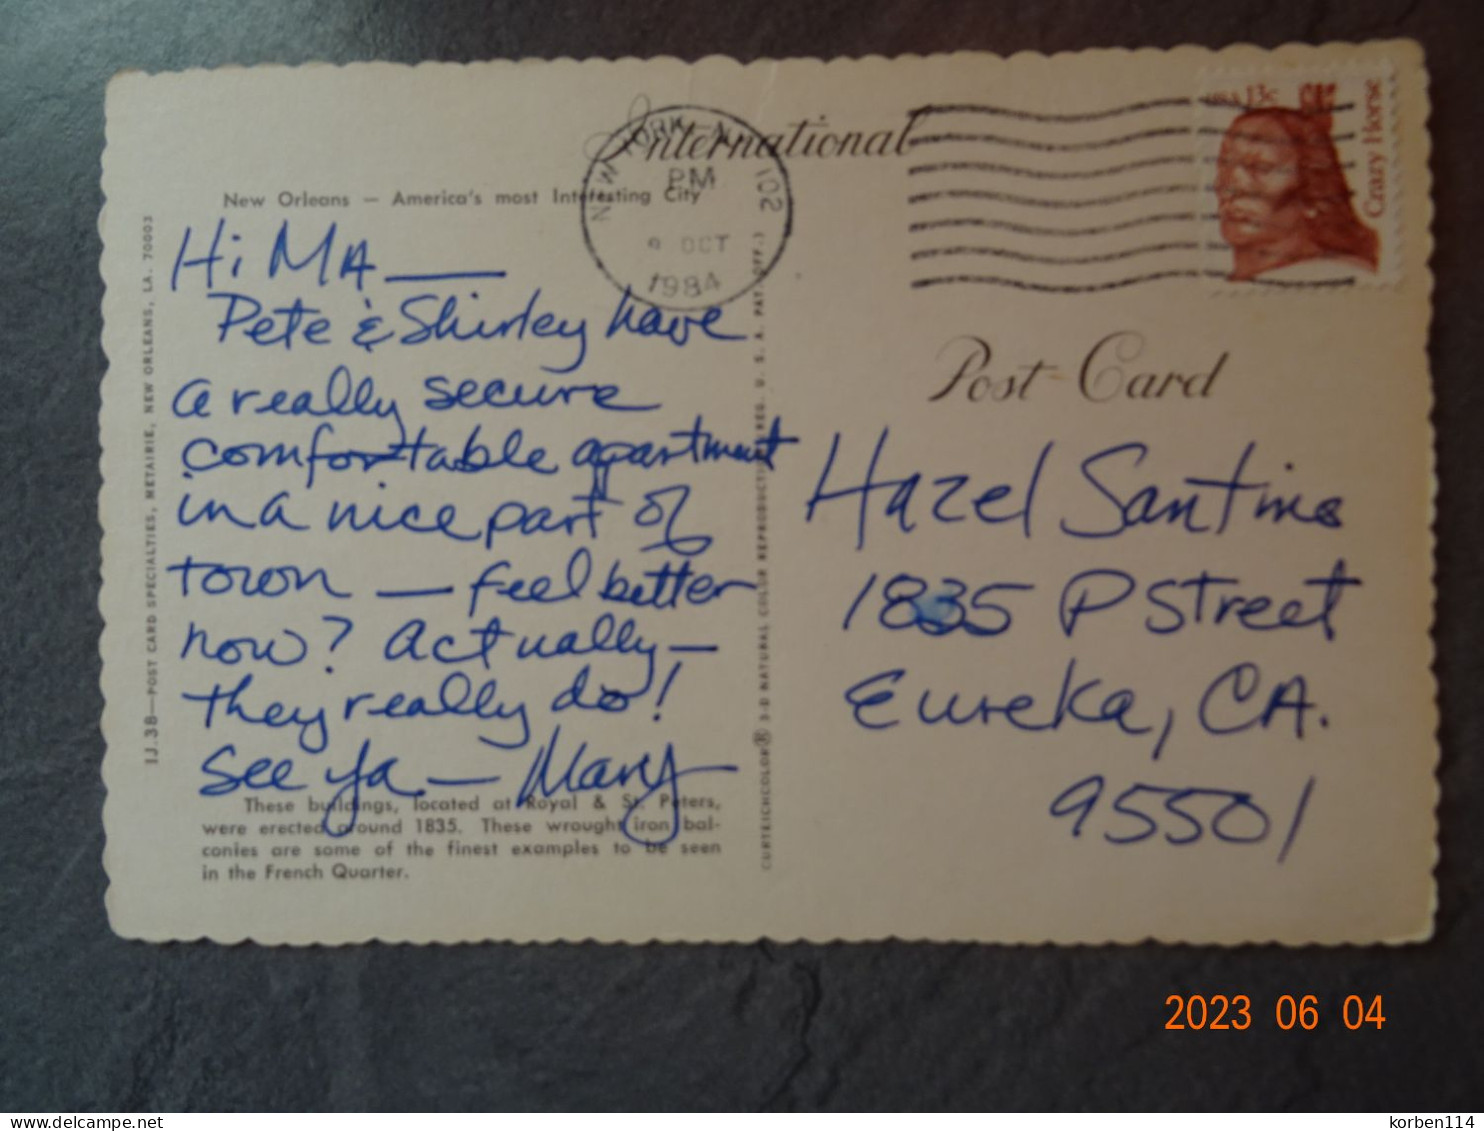 International
New Orleans — America's most Interesting City
NEW YORK, N.Y. 102
PM
9 OCT
1984
USA 13c
Crazy Horse
Hi MA —
Pete & Shirley have
a really secure
comfortable apartment
in a nice part of
town — feel better
now? Actually —
they really do!
See ya — Mary
These buildings, located at Royal & St. Peters,
were erected around 1835. These wrought iron bal-
conies are some of the finest examples to be seen
in the French Quarter.
1J.3B—POST CARD SPECIALTIES, METAIRIE, NEW ORLEANS, LA. 70003
CURTEICHCOLOR® 3-D NATURAL COLOR REPRODUCTION (REG. U. S. A. PAT. OFF.)
Post Card
Hazel Santino
1835 P Street
Eureka, CA.
95501
2023 06 04
korben114